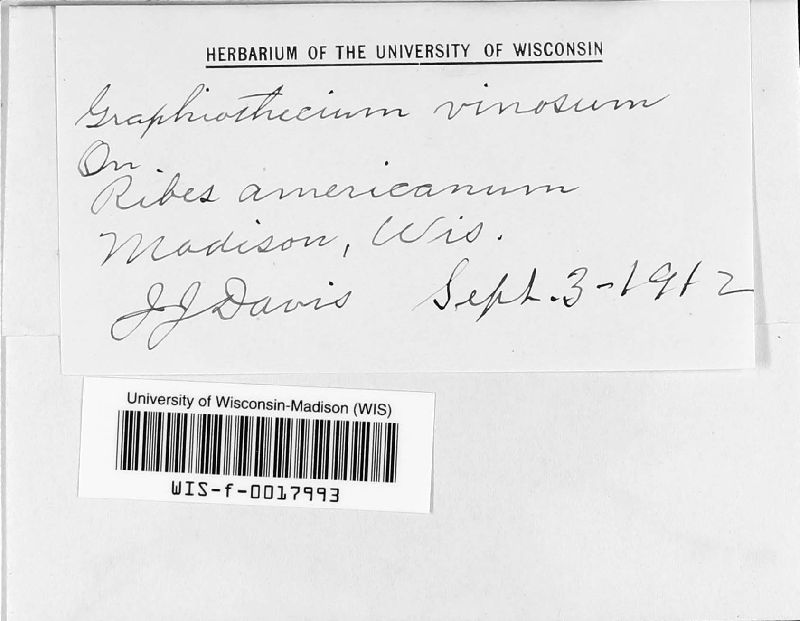 HERBARIUM OF THE UNIVERSITY OF WISCONSIN
Graphiothecium vinosum
On
Ribes americanum
Madison, Wis.
JJ Davis Sept. 3-1912
University of Wisconsin-Madison (WIS)
WIS-f-0017993